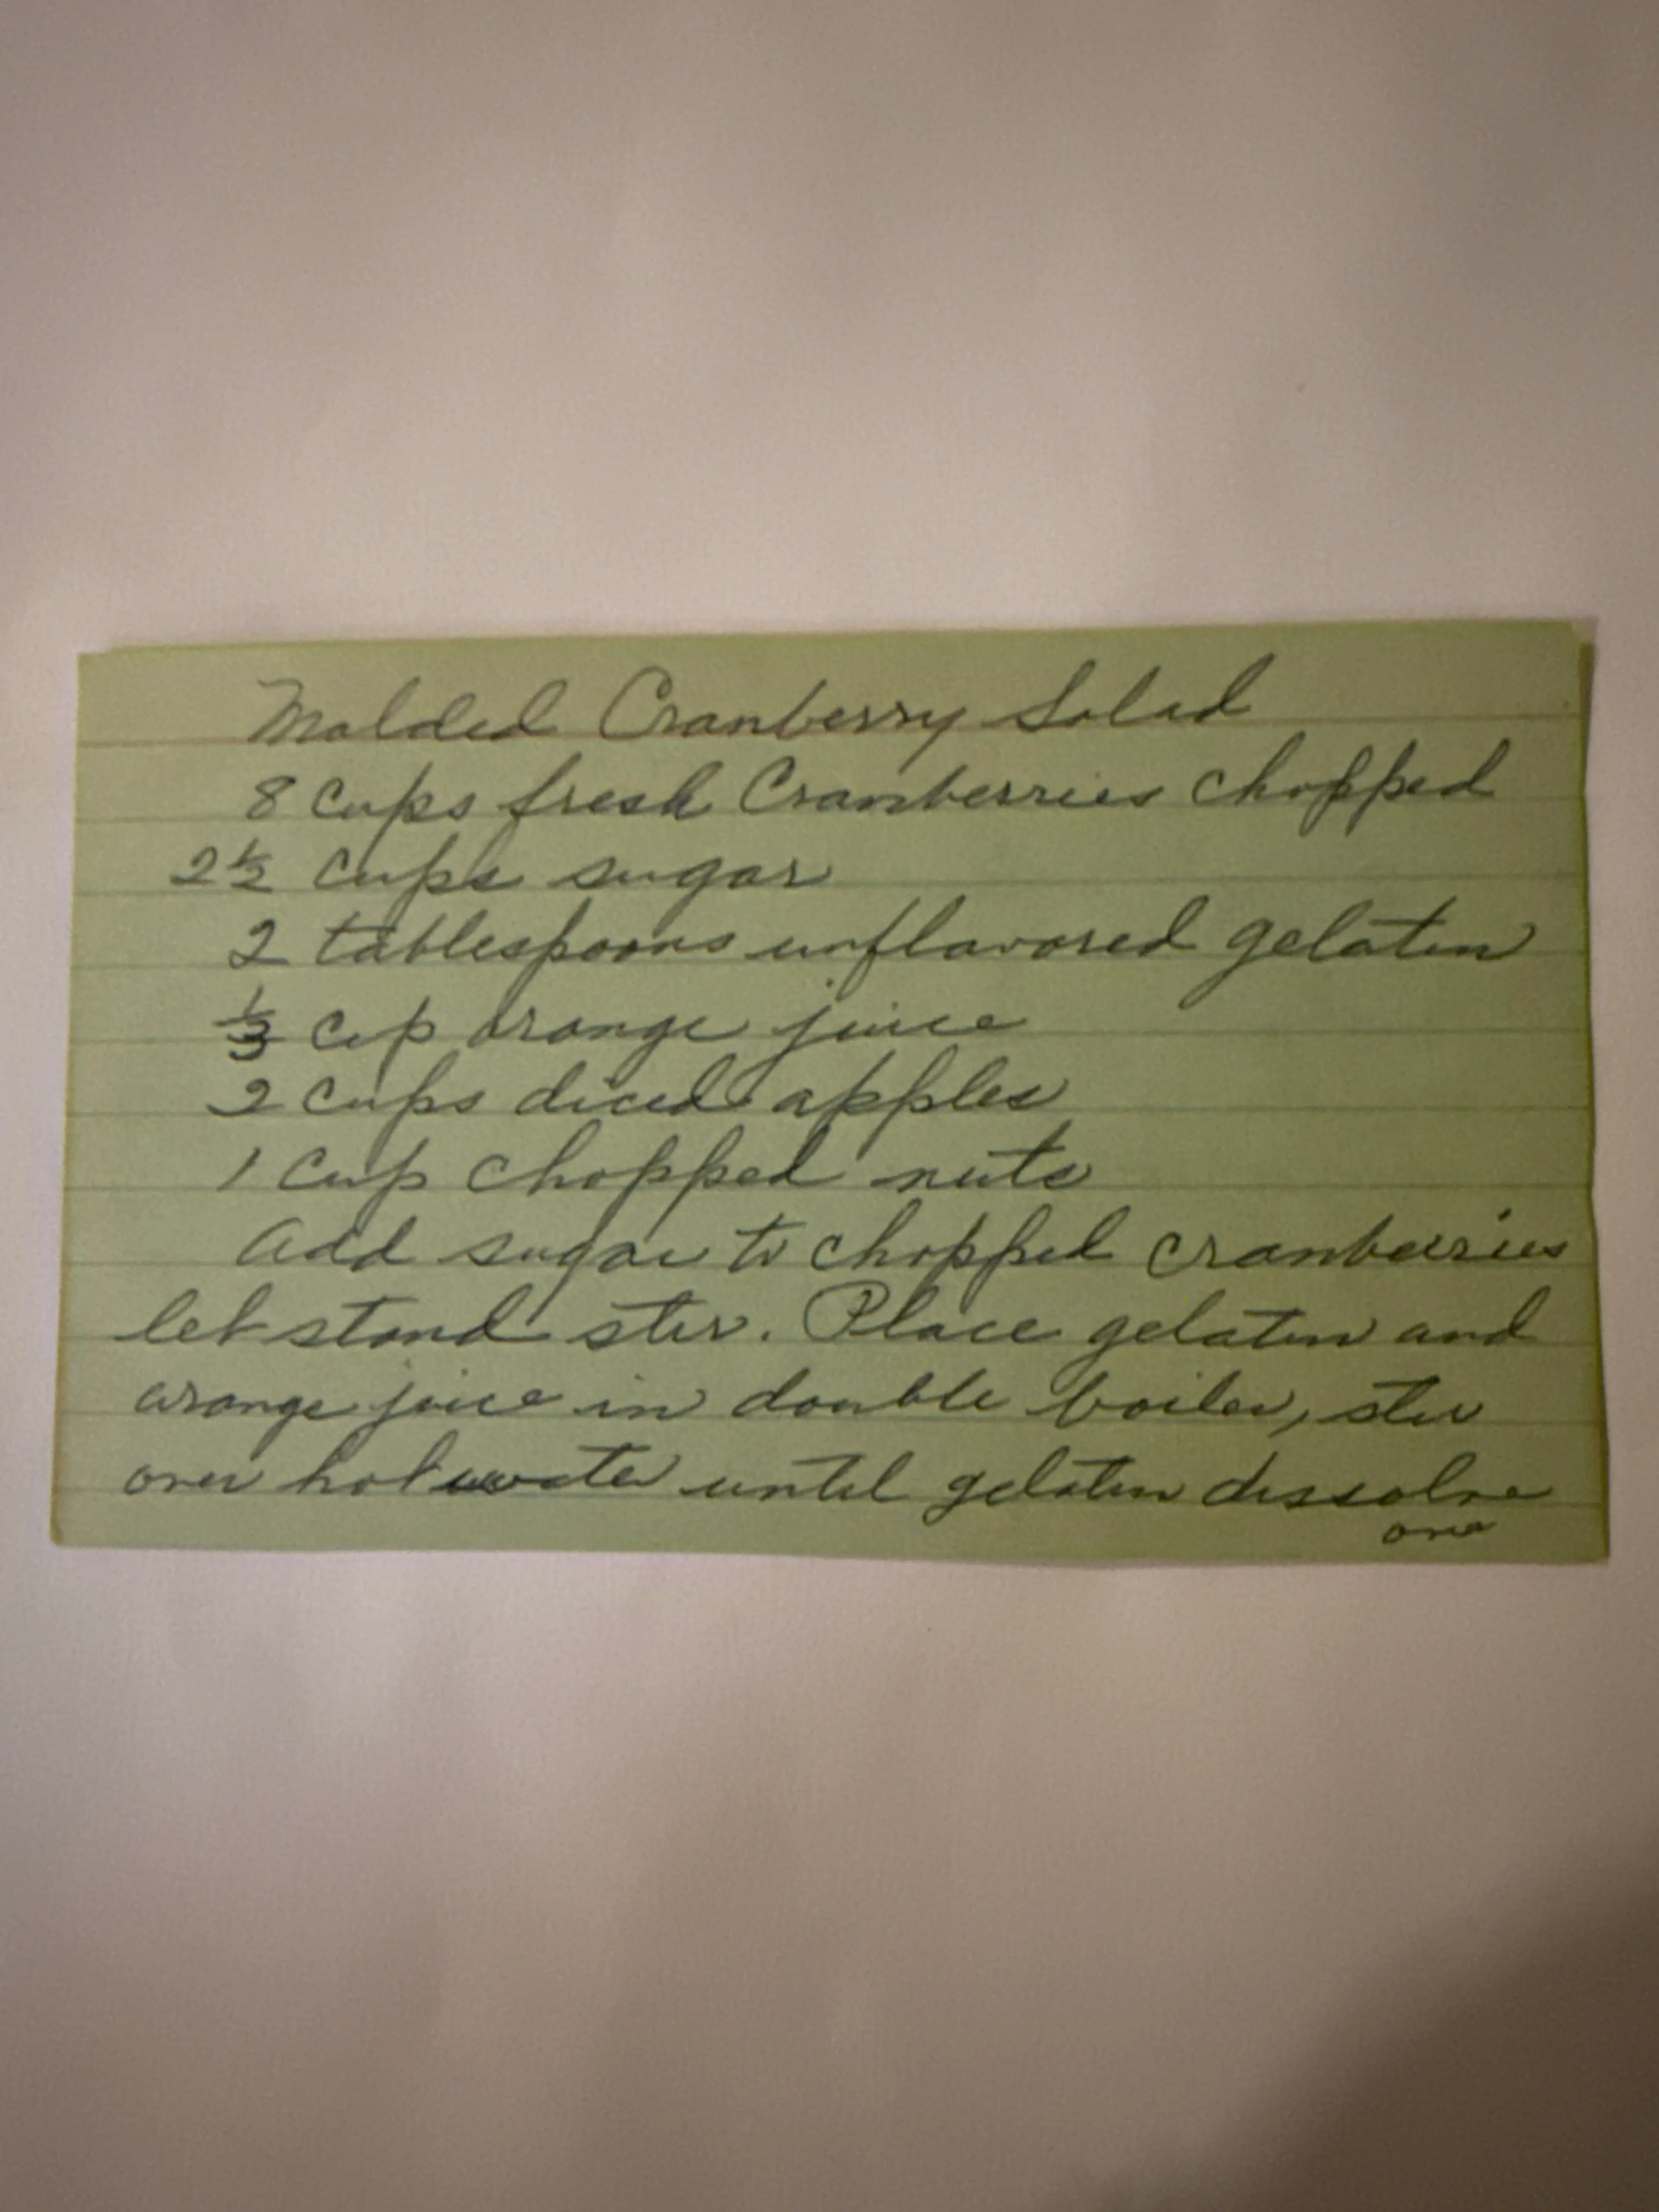 Molded Cranberry Salad
8 cups fresh Cranberries chopped
2 1/2 cups sugar
2 tablespoons unflavored gelatin
1/3 cup orange juice
2 cups diced apples
1 cup chopped nuts
Add sugar to chopped cranberries
let stand stir. Place gelatin and
orange juice in double boiler, stir
over hot water until gelatin dissolve